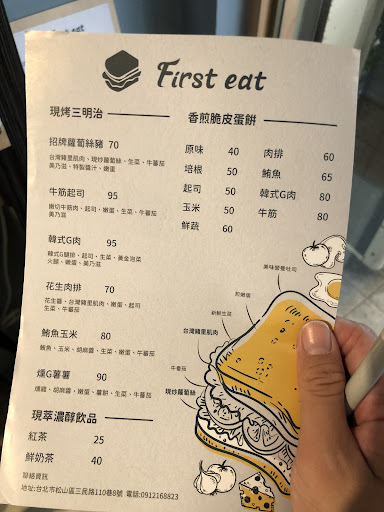 First eat
現烤三明治
招牌蘿蔔絲豬 70
台灣豬里肌肉、現炒蘿蔔絲、生菜、牛蕃茄
美乃滋、特製醬汁、嫩蛋
牛筋起司 95
嫩切牛筋肉、起司、嫩蛋、生菜、牛蕃茄
美乃滋
韓式G肉 95
韓式G腿排、起司、生菜、黃金泡菜
火腿、嫩蛋、美乃滋
花生肉排 70
花生醬、台灣豬里肌肉、嫩蛋、起司
生菜、牛蕃茄
鮪魚玉米 80
鮪魚、玉米、胡麻醬、生菜、嫩蛋、牛蕃茄
燻G薯薯 90
燻雞、胡麻醬、嫩蛋、薯餅、生菜、牛蕃茄
現萃濃醇飲品
紅茶 25
鮮奶茶 40
聯絡資訊
地址:台北市松山區三民路110巷8號 電話:0912168823
香煎脆皮蛋餅
原味 40
培根 50
起司 50
玉米 50
鮮蔬 60
肉排 60
鮪魚 65
韓式G肉 80
牛筋 80
美味營養吐司
煎嫩蛋
新鮮生菜
台灣豬里肌肉
牛蕃茄
現炒蘿蔔絲